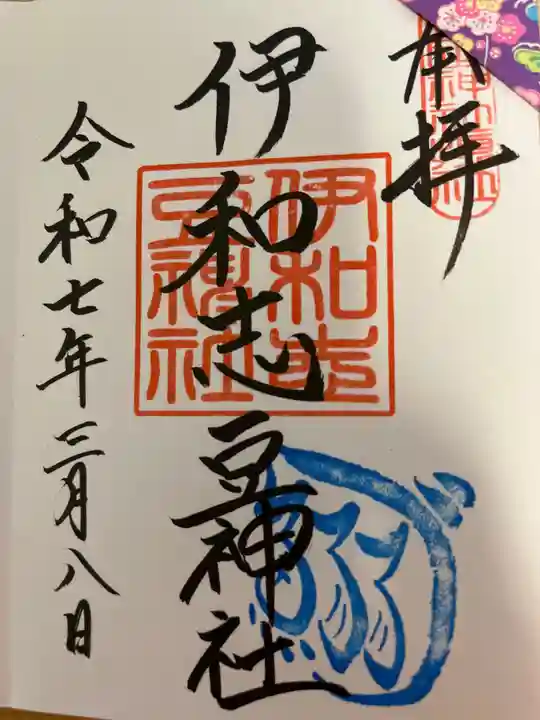 奉拝
伊和志豆神社
伊和志
豆神社
令和七年三月八日